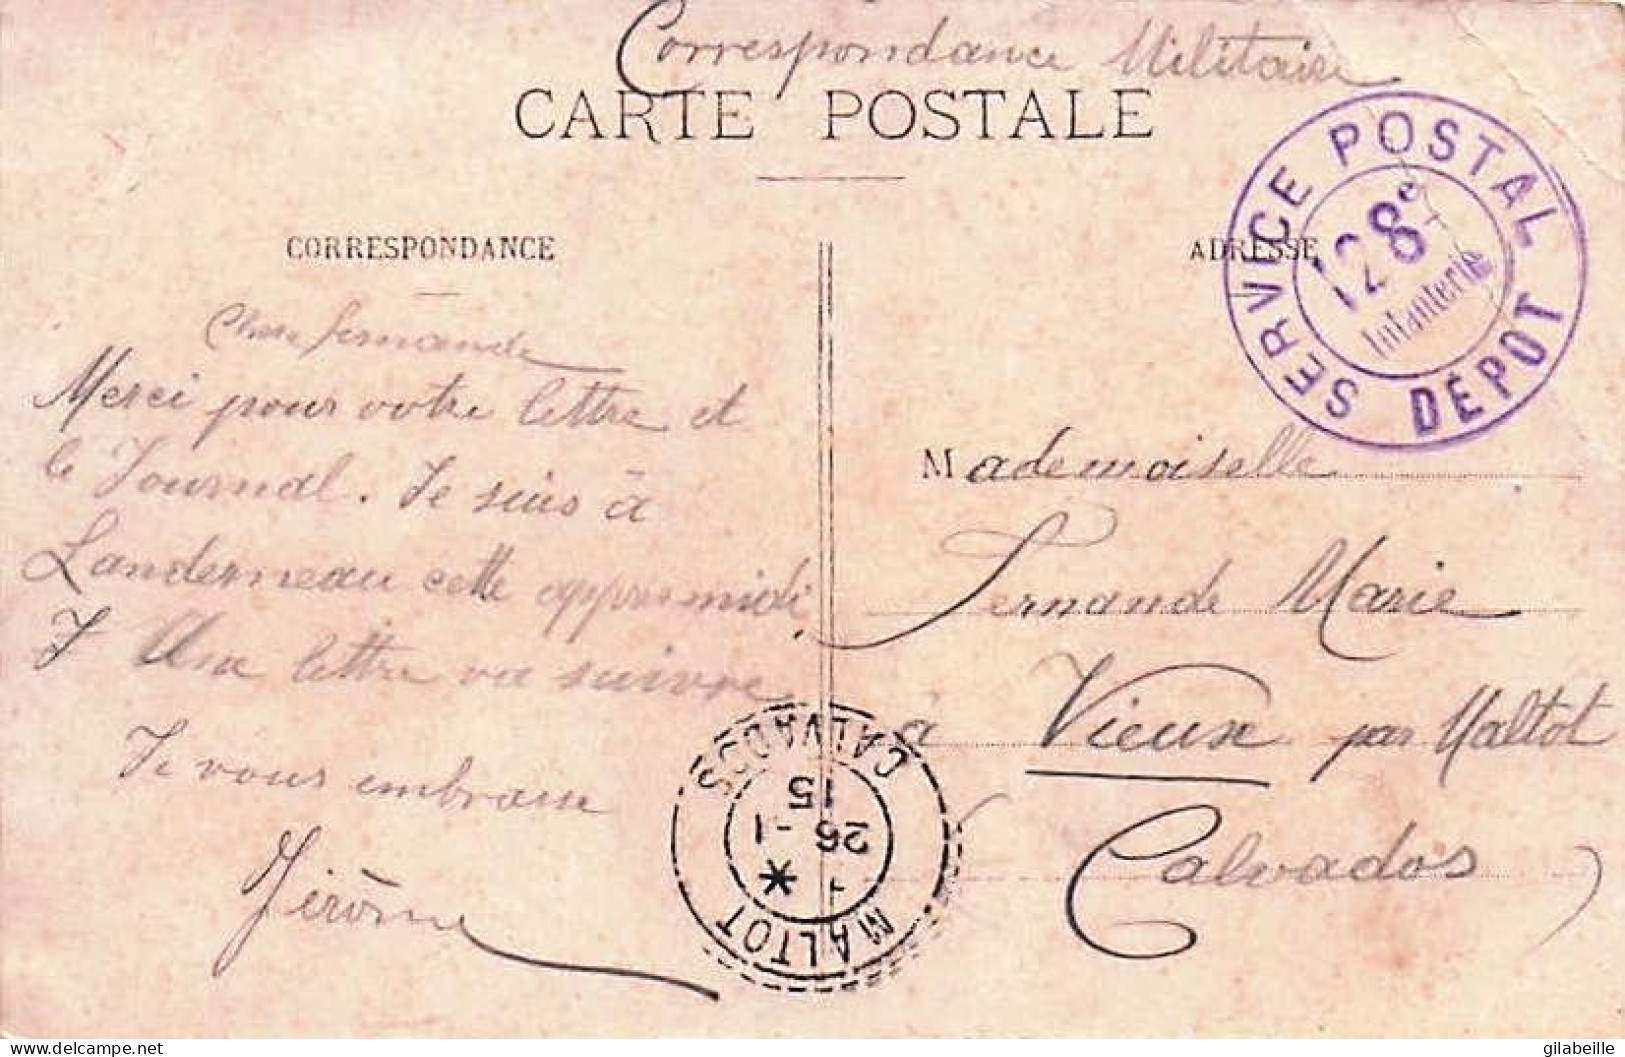 Correspondance Militaire
CARTE POSTALE
CORRESPONDANCE
ADRESSE
SERVICE POSTAL
128e
Infanterie
DÉPOT
Chère fernande
Merci pour votre lettre et
le Journal. Je suis à
Landerneau cette appresmidi
Une lettre va suivre
Je vous embrasse
Jérôme
Mademoiselle
Fernande Marie
à Vieux par Maltot
Calvados
MALTOT
26 - 1
15
CALVADOS
delcampe.net
gilabeille